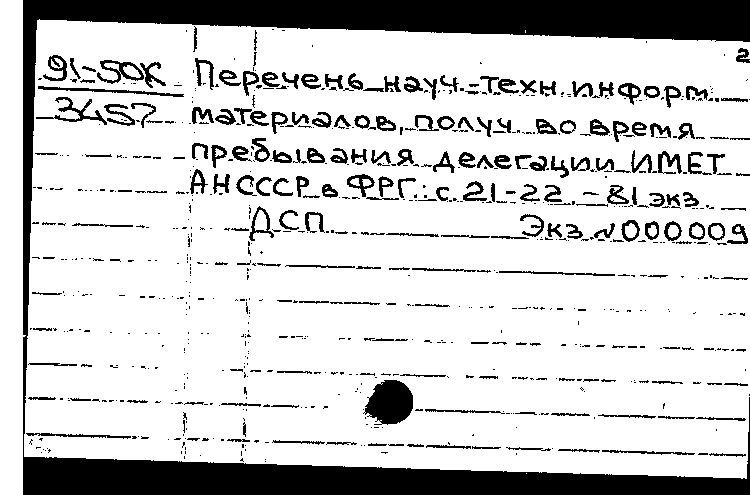 2
91-50К Перечень науч.-техн. информ.
3457 материалов, получ во время
пребывания делегации ИМЕТ
АНСССР в ФРГ.: с. 21-22. - 81 экз.
ДСП Экз. № 000009